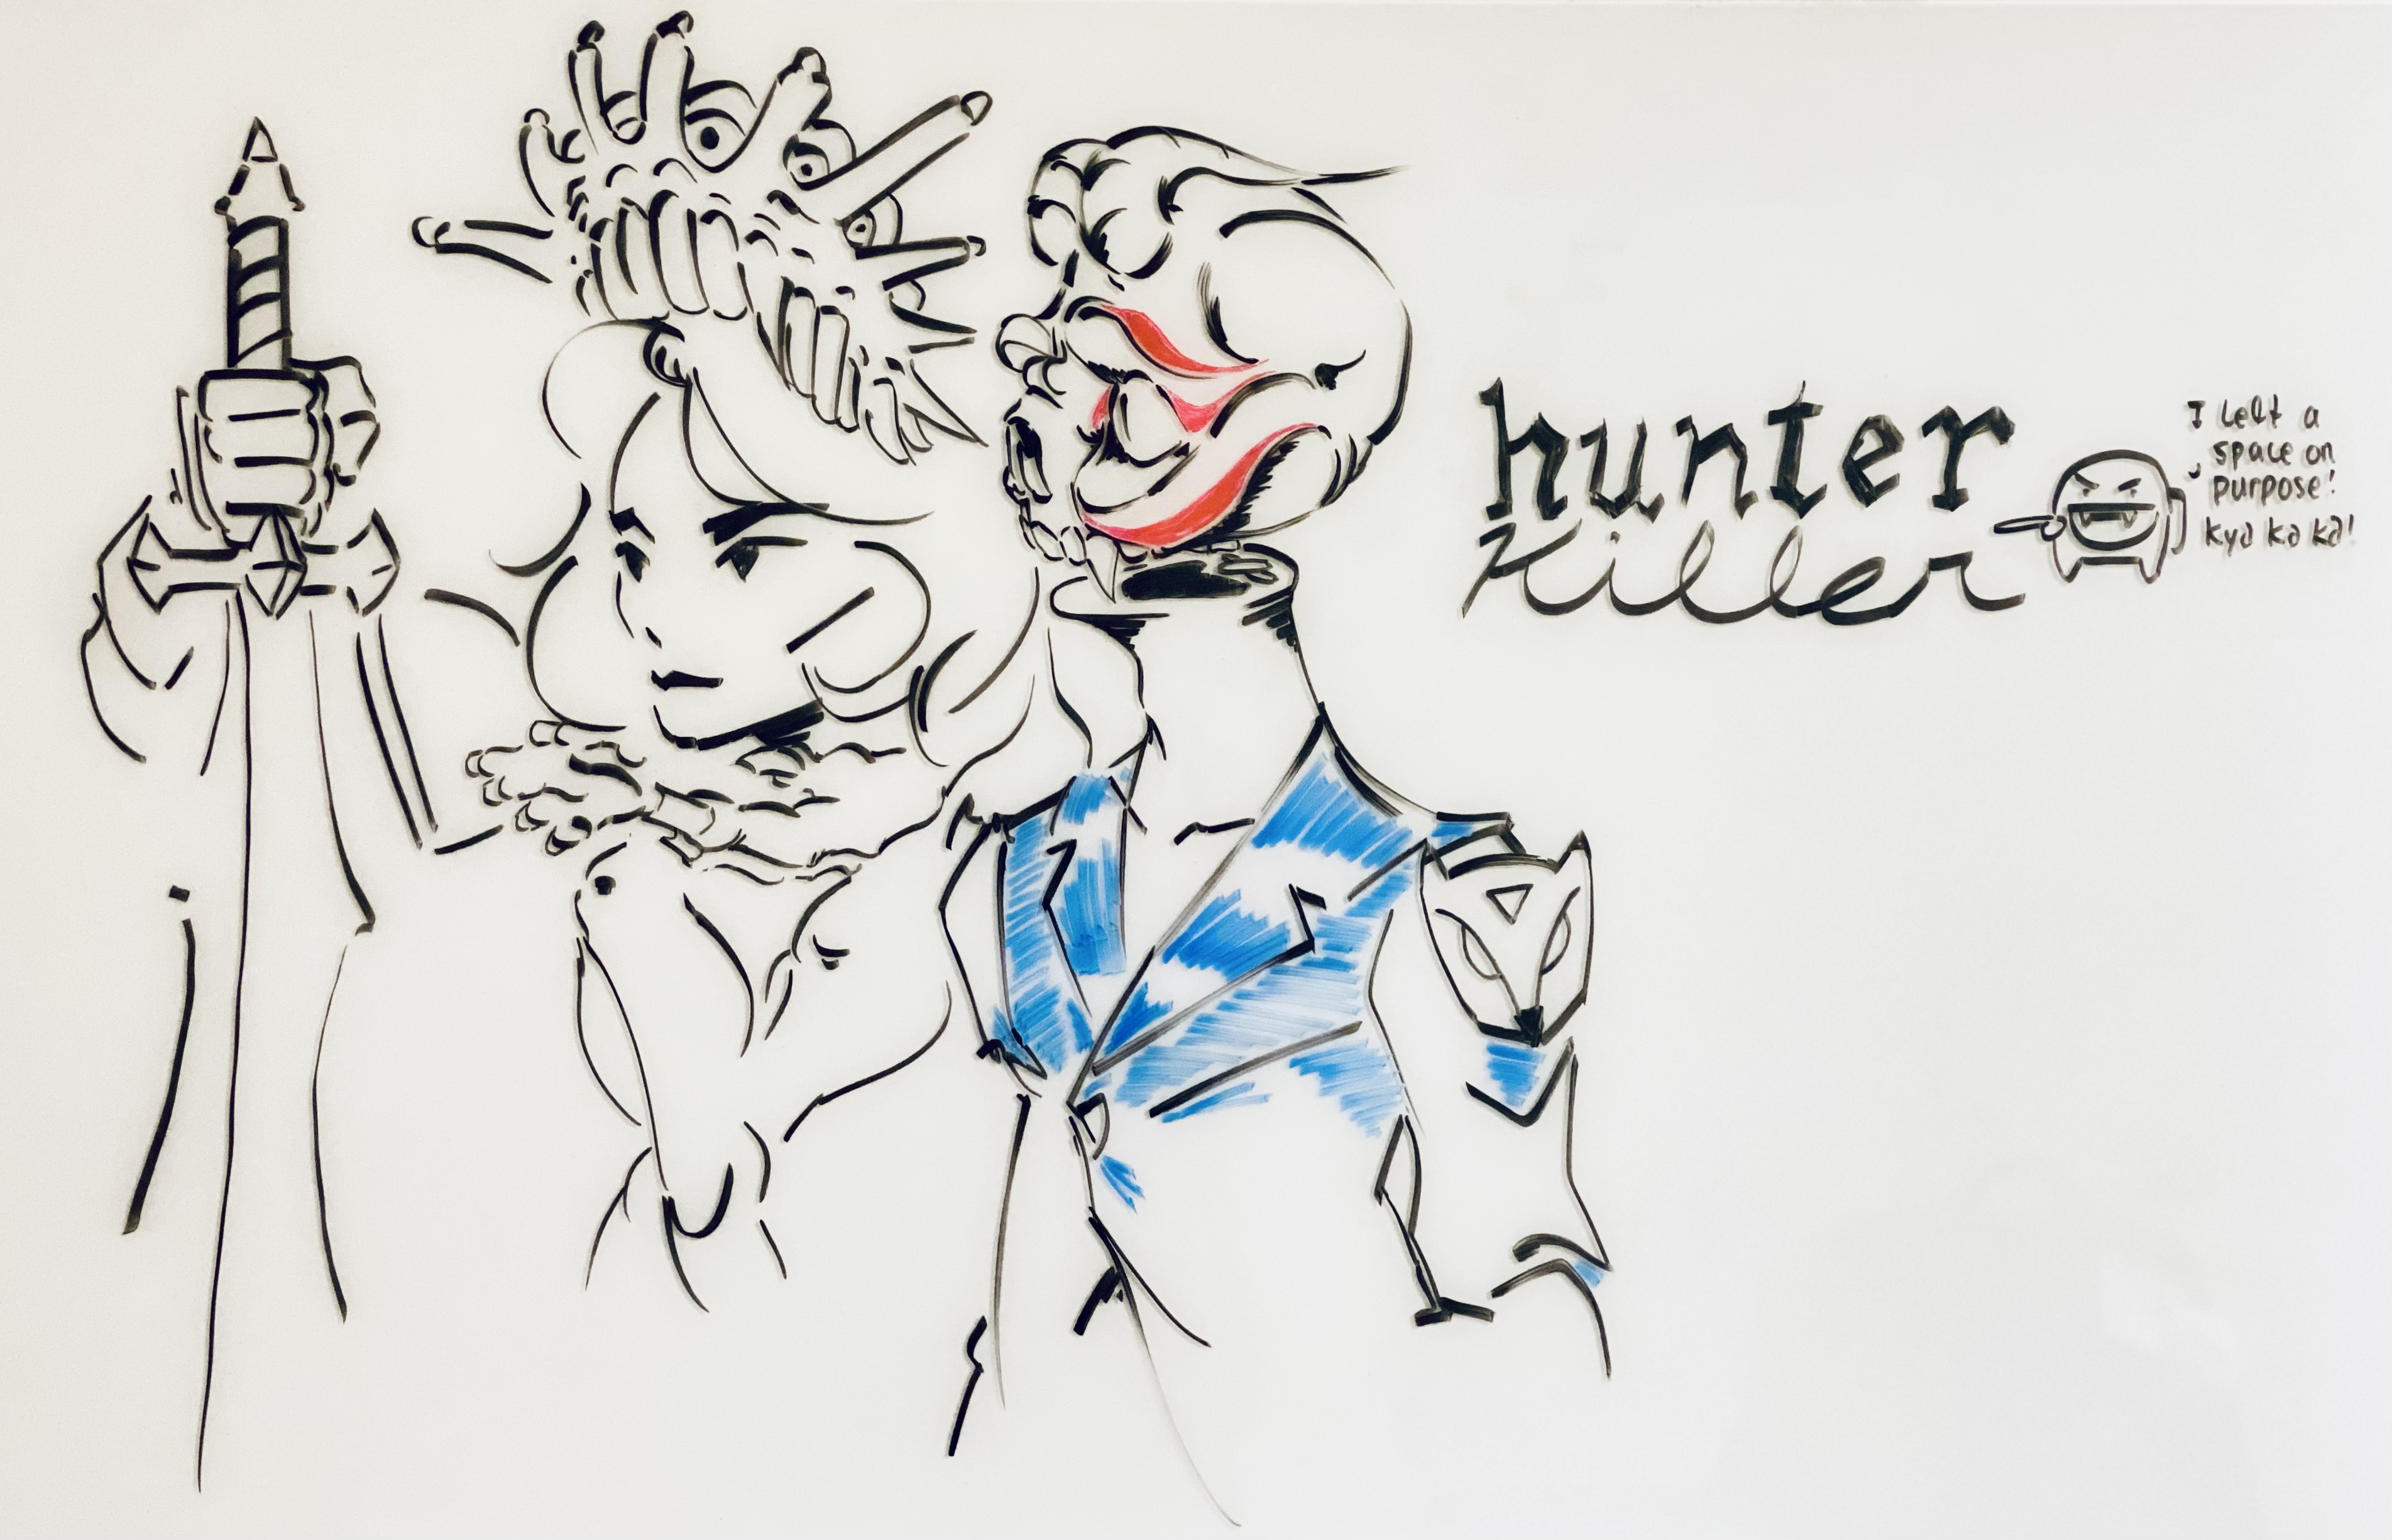 hunter
killer
I left a
space on
purpose!
kya ka ka!